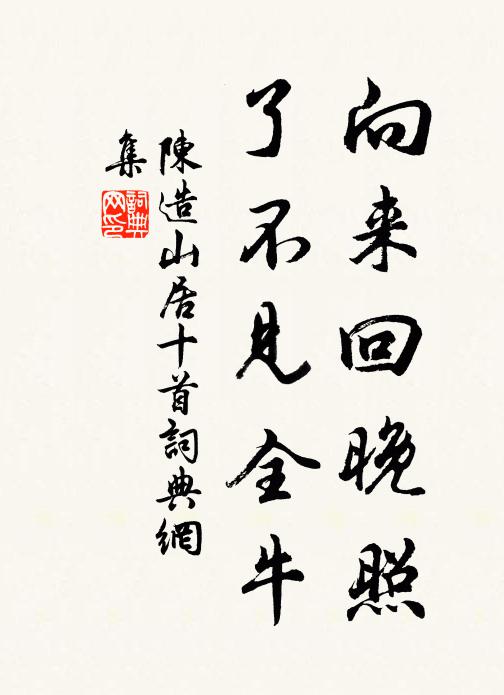 向来回晚照
了不见全牛
陳造山居十首詞典網
集
詞典网印